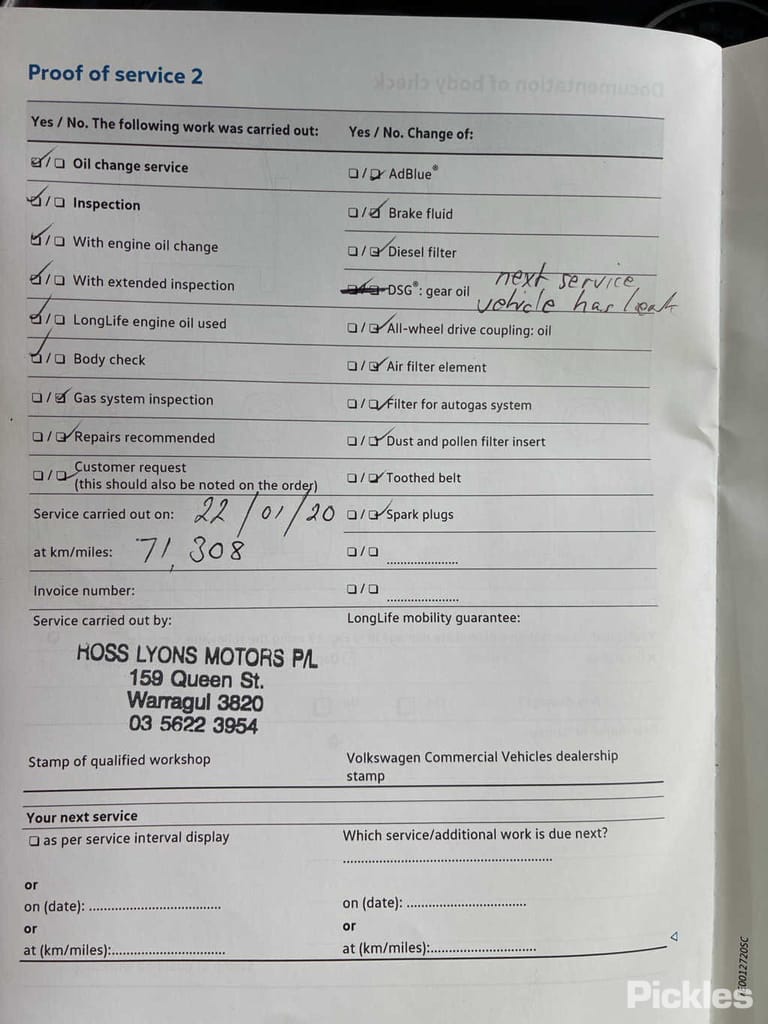 Proof of service 2
Yes / No. The following work was carried out:
Yes / No. Change of:
☑/☐ Oil change service
☐/☑ AdBlue®
☑/☐ Inspection
☐/☑ Brake fluid
☑/☐ With engine oil change
☐/☑ Diesel filter
☑/☐ With extended inspection
DSG®: gear oil next service
vehicle has leak
☑/☐ LongLife engine oil used
☐/☑ All-wheel drive coupling: oil
☑/☐ Body check
☐/☑ Air filter element
☐/☑ Gas system inspection
☐/☑ Filter for autogas system
☐/☑ Repairs recommended
☐/☑ Dust and pollen filter insert
☐/☑ Customer request
(this should also be noted on the order)
☐/☑ Toothed belt
Service carried out on: 22/01/20
☐/☑ Spark plugs
at km/miles: 71,308
☐/☐ ....................
Invoice number:
☐/☐ ....................
Service carried out by:
LongLife mobility guarantee:
ROSS LYONS MOTORS P/L
159 Queen St.
Warragul 3820
03 5622 3954
Stamp of qualified workshop
Volkswagen Commercial Vehicles dealership
stamp
Your next service
☐ as per service interval display
Which service/additional work is due next?
or
on (date): ....................
on (date): ....................
or
or
at (km/miles):....................
at (km/miles):....................
Pickles